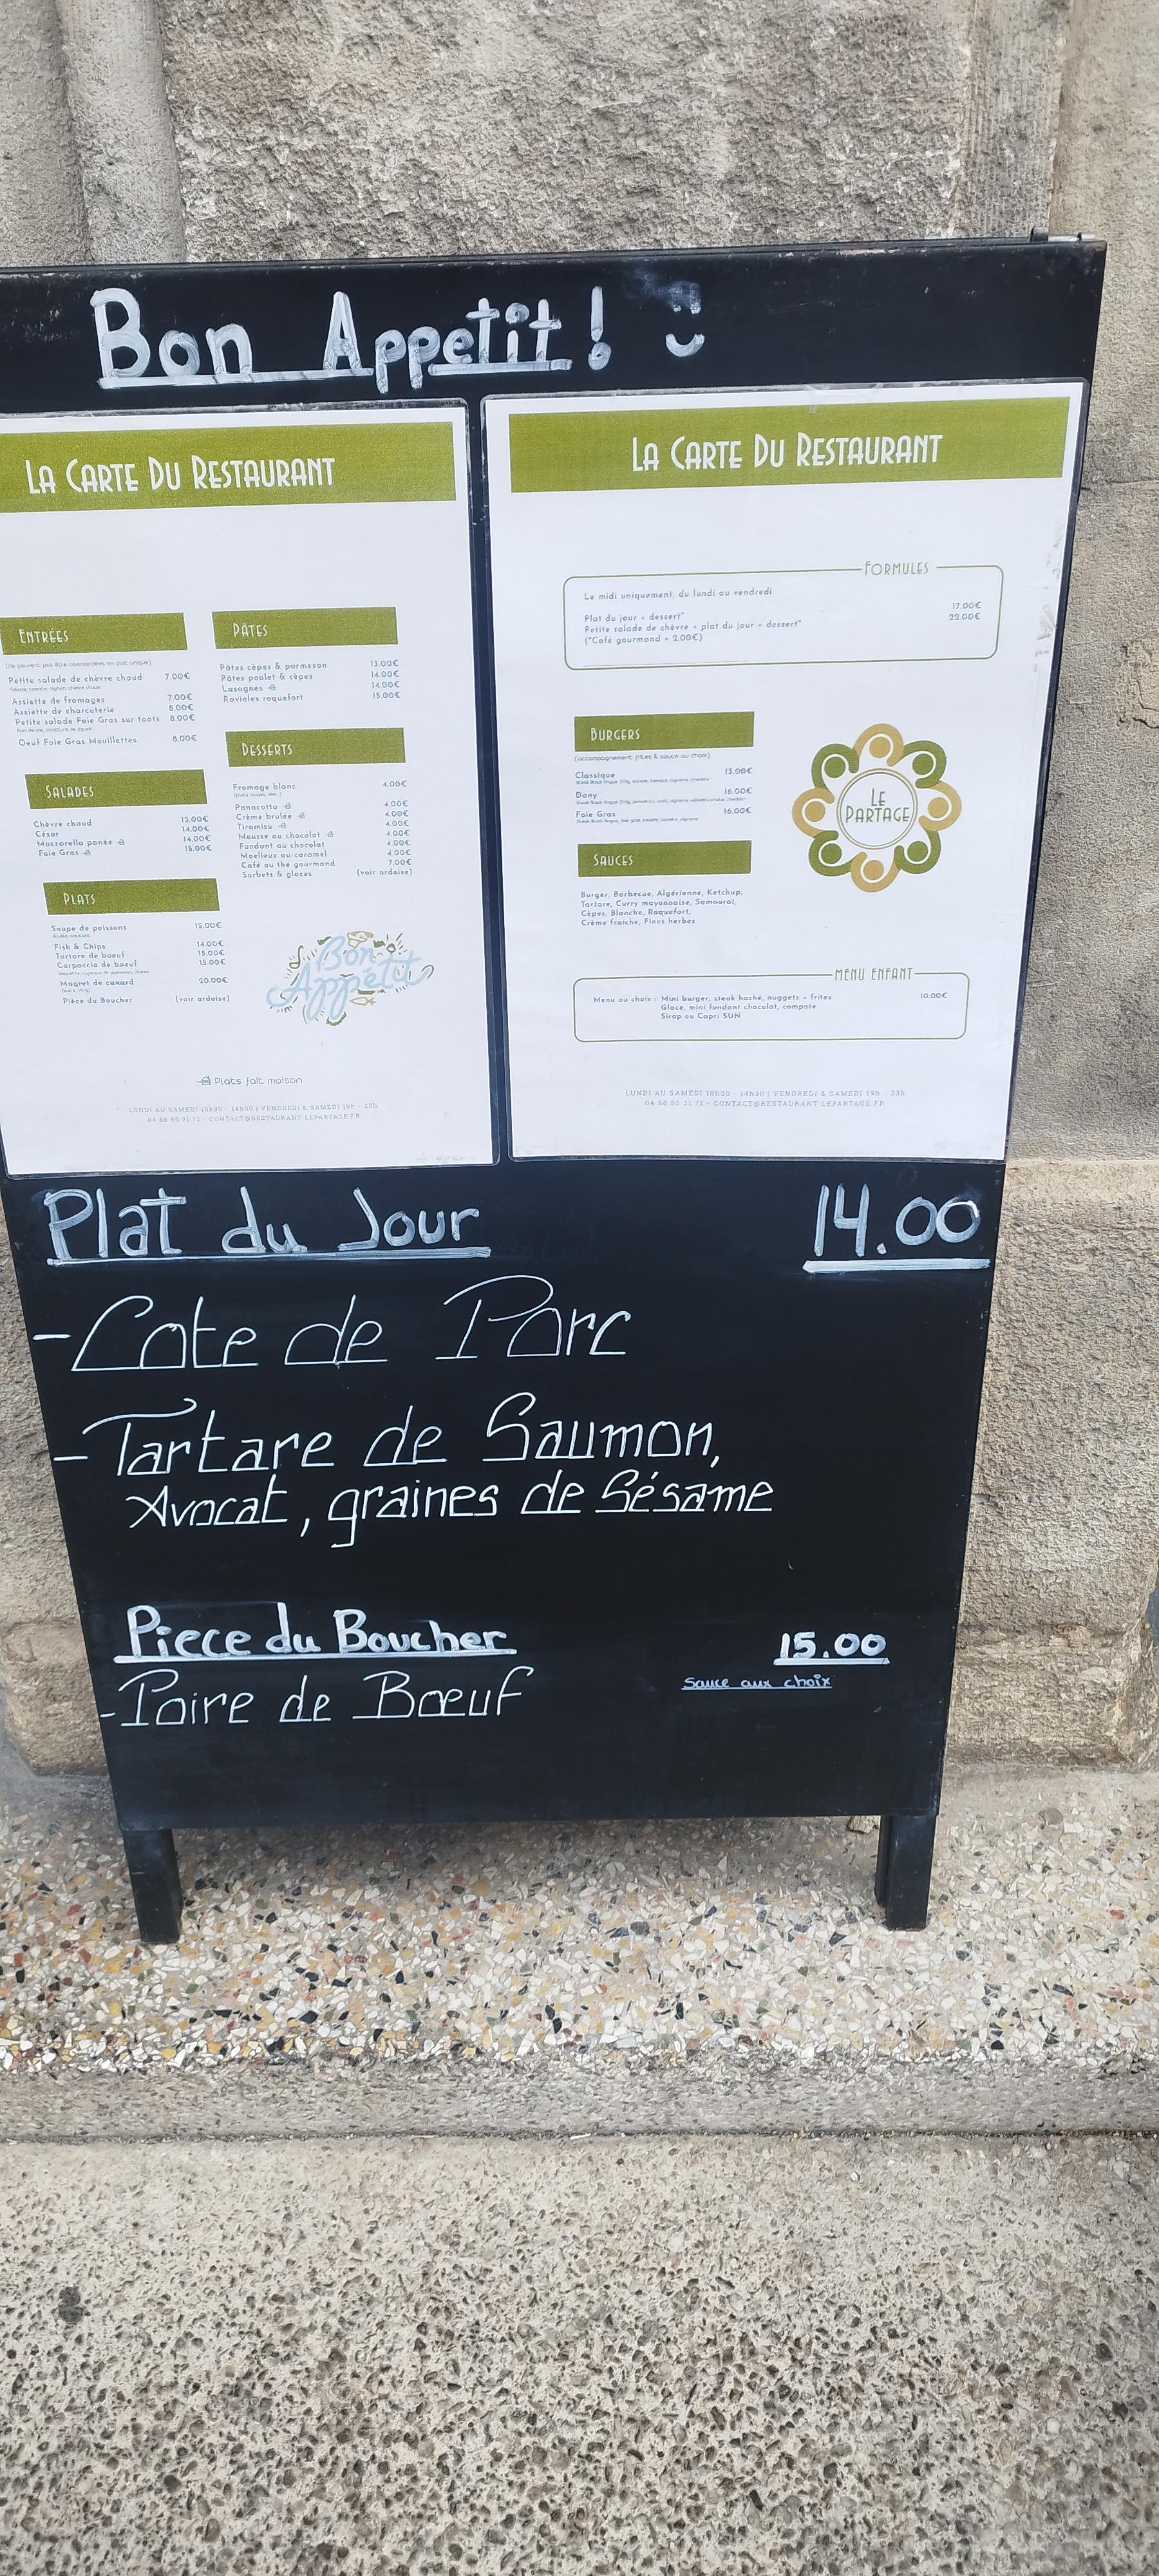 Bon Appetit !
LA CARTE DU RESTAURANT
ENTRÉES
(Ne peuvent pas être commandées en plat unique)
Petite salade de chèvre chaud 7.00€
Assiette de fromages 7.00€
Assiette de charcuterie 8.00€
Petite salade Foie Gras sur toasts 8.00€
Oeuf Foie Gras Mouillettes 8.00€
SALADES
Chèvre chaud 13.00€
César 14.00€
Mozzarella panée 14.00€
Foie Gras 15.00€
PLATS
Soupe de poissons 15.00€
Fish & Chips 14.00€
Tartare de boeuf 15.00€
Carpaccio de boeuf 15.00€
Magret de canard 20.00€
Pièce du Boucher (voir ardoise)
PÂTES
Pâtes cèpes & parmesan 13.00€
Pâtes poulet & cèpes 14.00€
Lasagnes 14.00€
Ravioles roquefort 15.00€
DESSERTS
Fromage blanc 4.00€
Panacotta 4.00€
Crème brulée 4.00€
Tiramisu 4.00€
Mousse au chocolat 4.00€
Fondant au chocolat 4.00€
Moelleux au caramel 4.00€
Café ou thé gourmand 7.00€
Sorbets & glaces (voir ardoise)
Bon
Appétit
Plats fait maison
LUNDI AU SAMEDI 10h30 - 14h30 | VENDREDI & SAMEDI 19h - 23h
04 66 85 31 71 - CONTACT@RESTAURANT-LEPARTAGE.FR
LA CARTE DU RESTAURANT
FORMULES
Le midi uniquement, du lundi au vendredi
Plat du jour + dessert* 17.00€
Petite salade de chèvre + plat du jour + dessert* 22.00€
(*Café gourmand + 2.00€)
BURGERS
(accompagnement frites & sauce au choix)
Classique 13.00€
Dany 16.00€
Foie Gras 16.00€
LE
PARTAGE
SAUCES
Burger, Barbecue, Algérienne, Ketchup,
Tartare, Curry mayonnaise, Samouraï,
Cèpes, Blanche, Roquefort,
Crème fraiche, Fines herbes
MENU ENFANT
Menu au choix : Mini burger, steak haché, nuggets + frites 10.00€
Glace, mini fondant chocolat, compote
Sirop ou Capri SUN
LUNDI AU SAMEDI 10h30 - 14h30 | VENDREDI & SAMEDI 19h - 23h
04 66 85 31 71 - CONTACT@RESTAURANT-LEPARTAGE.FR
Plat du Jour 14.00
- Cote de Porc
- Tartare de Saumon,
Avocat, graines de Sésame
Piece du Boucher 15.00
Sauce aux choix
- Poire de Bœuf